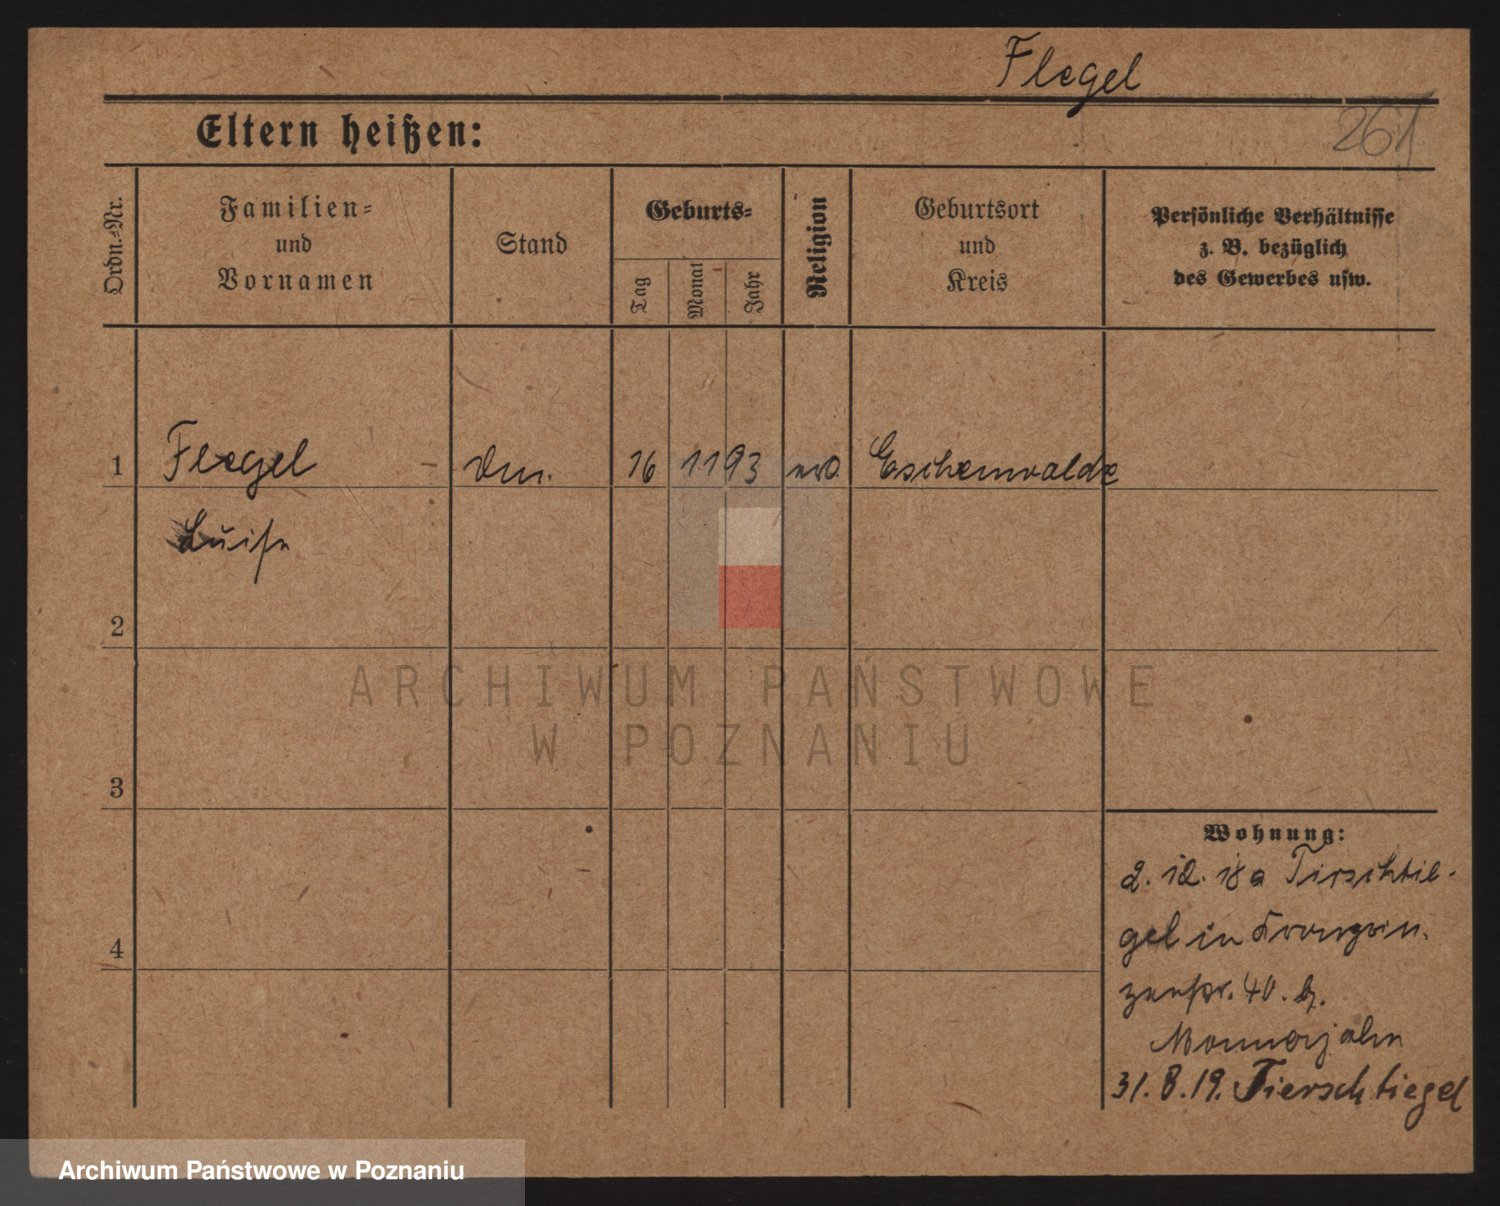 Flegel
261
Eltern heißen:
Ordn.-Nr.
Familien-
und
Vornamen
Stand
Geburts-
Tag
Monat
Jahr
Religion
Geburtsort
und
Kreis
Persönliche Verhältnisse
z. B. bezüglich
des Gewerbes usw.
1 Flegel 16 11 93 Eschenwalde
Luise
2
ARCHIWUM PAŃSTWOWE
W POZNANIU
3
Wohnung:
2. 12. 18 a Tirschtie-
gel in Kronprin-
zenstr. 40. b.
4
31. 8. 19. Tierschtiegel
Archiwum Państwowe w Poznaniu